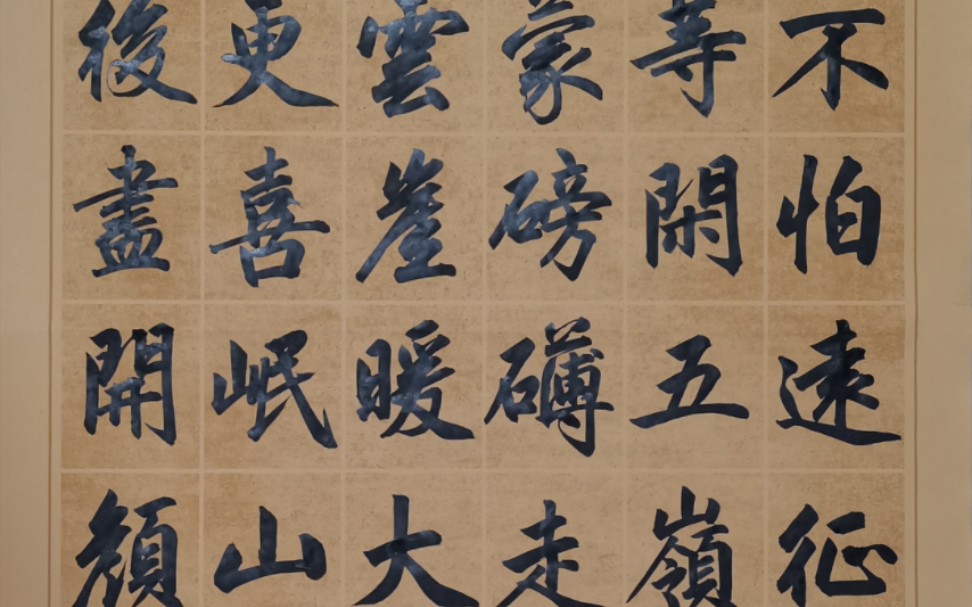 不怕遠征
等閑五嶺
蒙磅礴走
雲崖暖大
更喜岷山
後盡開顏